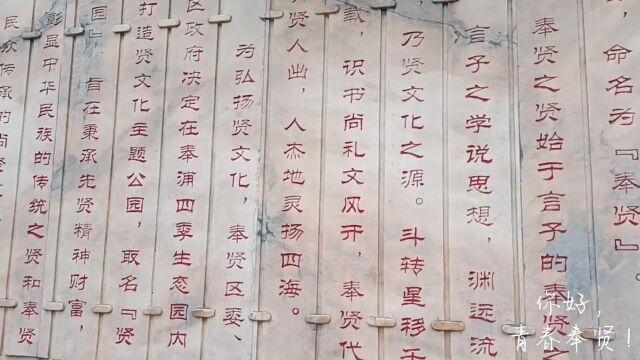 ，命名为『奉贤』。
奉贤之贤始于言子的奉贤
言子之学说思想，渊远流
乃贤文化之源。斗转星移于
载，识书尚礼文风开，奉贤代
贤人出，人杰地灵扬四海。
为弘扬贤文化，奉贤区委、
区政府决定在奉浦四季生态园内
打造贤文化主题公园，取名『贤
园』旨在秉承先贤精神财富，
彰显中华民族的传统之贤和奉贤
民众传承的尚贤
你好，
青春奉贤！